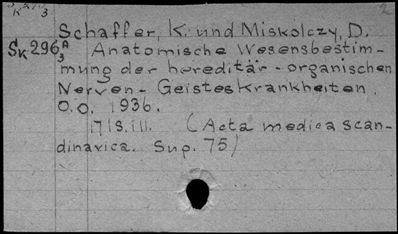 2
Schaffer, K. und Miskolczy, D.
SK 296 A/3 Anatomische Wesensbestim-
mung der hereditär-organischen
Nerven-Geisteskrankheiten.
O.O. 1936.
171 S. ill. (Acta medica scan-
dinavica. Sup. 75)